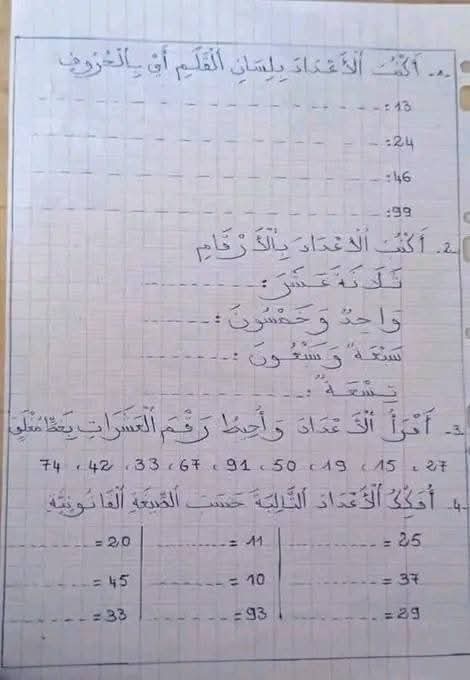 1. أَكْتُبُ الْأَعْدَادَ بِلِسَانِ الْقَلَمِ أَيْ بِالْحُرُوفِ
13:
24:
46:
99:
2. أَكْتُبُ الْأَعْدَادَ بِالْأَرْقَامِ
ثَلَاثَةَ عَشَرَ:
وَاحِدٌ وَخَمْسُونَ:
سَبْعَةٌ وَسَبْعُونَ:
تِسْعَةٌ:
3. أَقْرَأُ الْأَعْدَادَ وَأُحِيطُ رَقْمَ الْعَشَرَاتِ بِخَطٍّ مُغْلَقٍ
27، 15، 19، 50، 91، 67، 33، 42، 74
4. أُفَكِّكُ الْأَعْدَادَ التَّالِيَةَ حَسَبَ الصِّيغَةِ الْقَانُونِيَّةِ
25 = 11 = 20 =
37 = 10 = 45 =
29 = 93 = 33 =